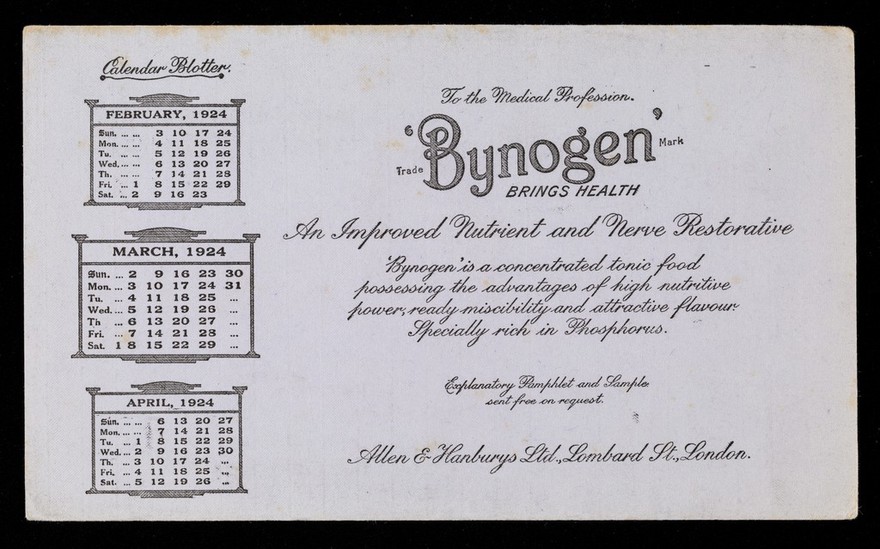 Calendar Blotter.
FEBRUARY, 1924
Sun. ... ... 3 10 17 24
Mon. ... ... 4 11 18 25
Tu. ... ... 5 12 19 26
Wed. ... ... 6 13 20 27
Th. ... ... 7 14 21 28
Fri. .. 1 8 15 22 29
Sat. .. 2 9 16 23
MARCH, 1924
Sun. ... 2 9 16 23 30
Mon. ... 3 10 17 24 31
Tu. ... 4 11 18 25 ...
Wed. ... 5 12 19 26 ...
Th ... 6 13 20 27 ...
Fri. ... 7 14 21 28 ...
Sat. 1 8 15 22 29 ...
APRIL, 1924
Sun. ... ... 6 13 20 27
Mon. ... ... 7 14 21 28
Tu. ... 1 8 15 22 29
Wed. ... 2 9 16 23 30
Th. ... 3 10 17 24 ...
Fri. ... 4 11 18 25 ...
Sat. ... 5 12 19 26 ...
To the Medical Profession.
Trade 'Bynogen' Mark
BRINGS HEALTH
An Improved Nutrient and Nerve Restorative
'Bynogen' is a concentrated tonic food
possessing the advantages of high nutritive
power, ready miscibility and attractive flavour.
Specially rich in Phosphorus.
Explanatory Pamphlet and Sample
sent free on request.
Allen & Hanburys Ltd., Lombard St., London.